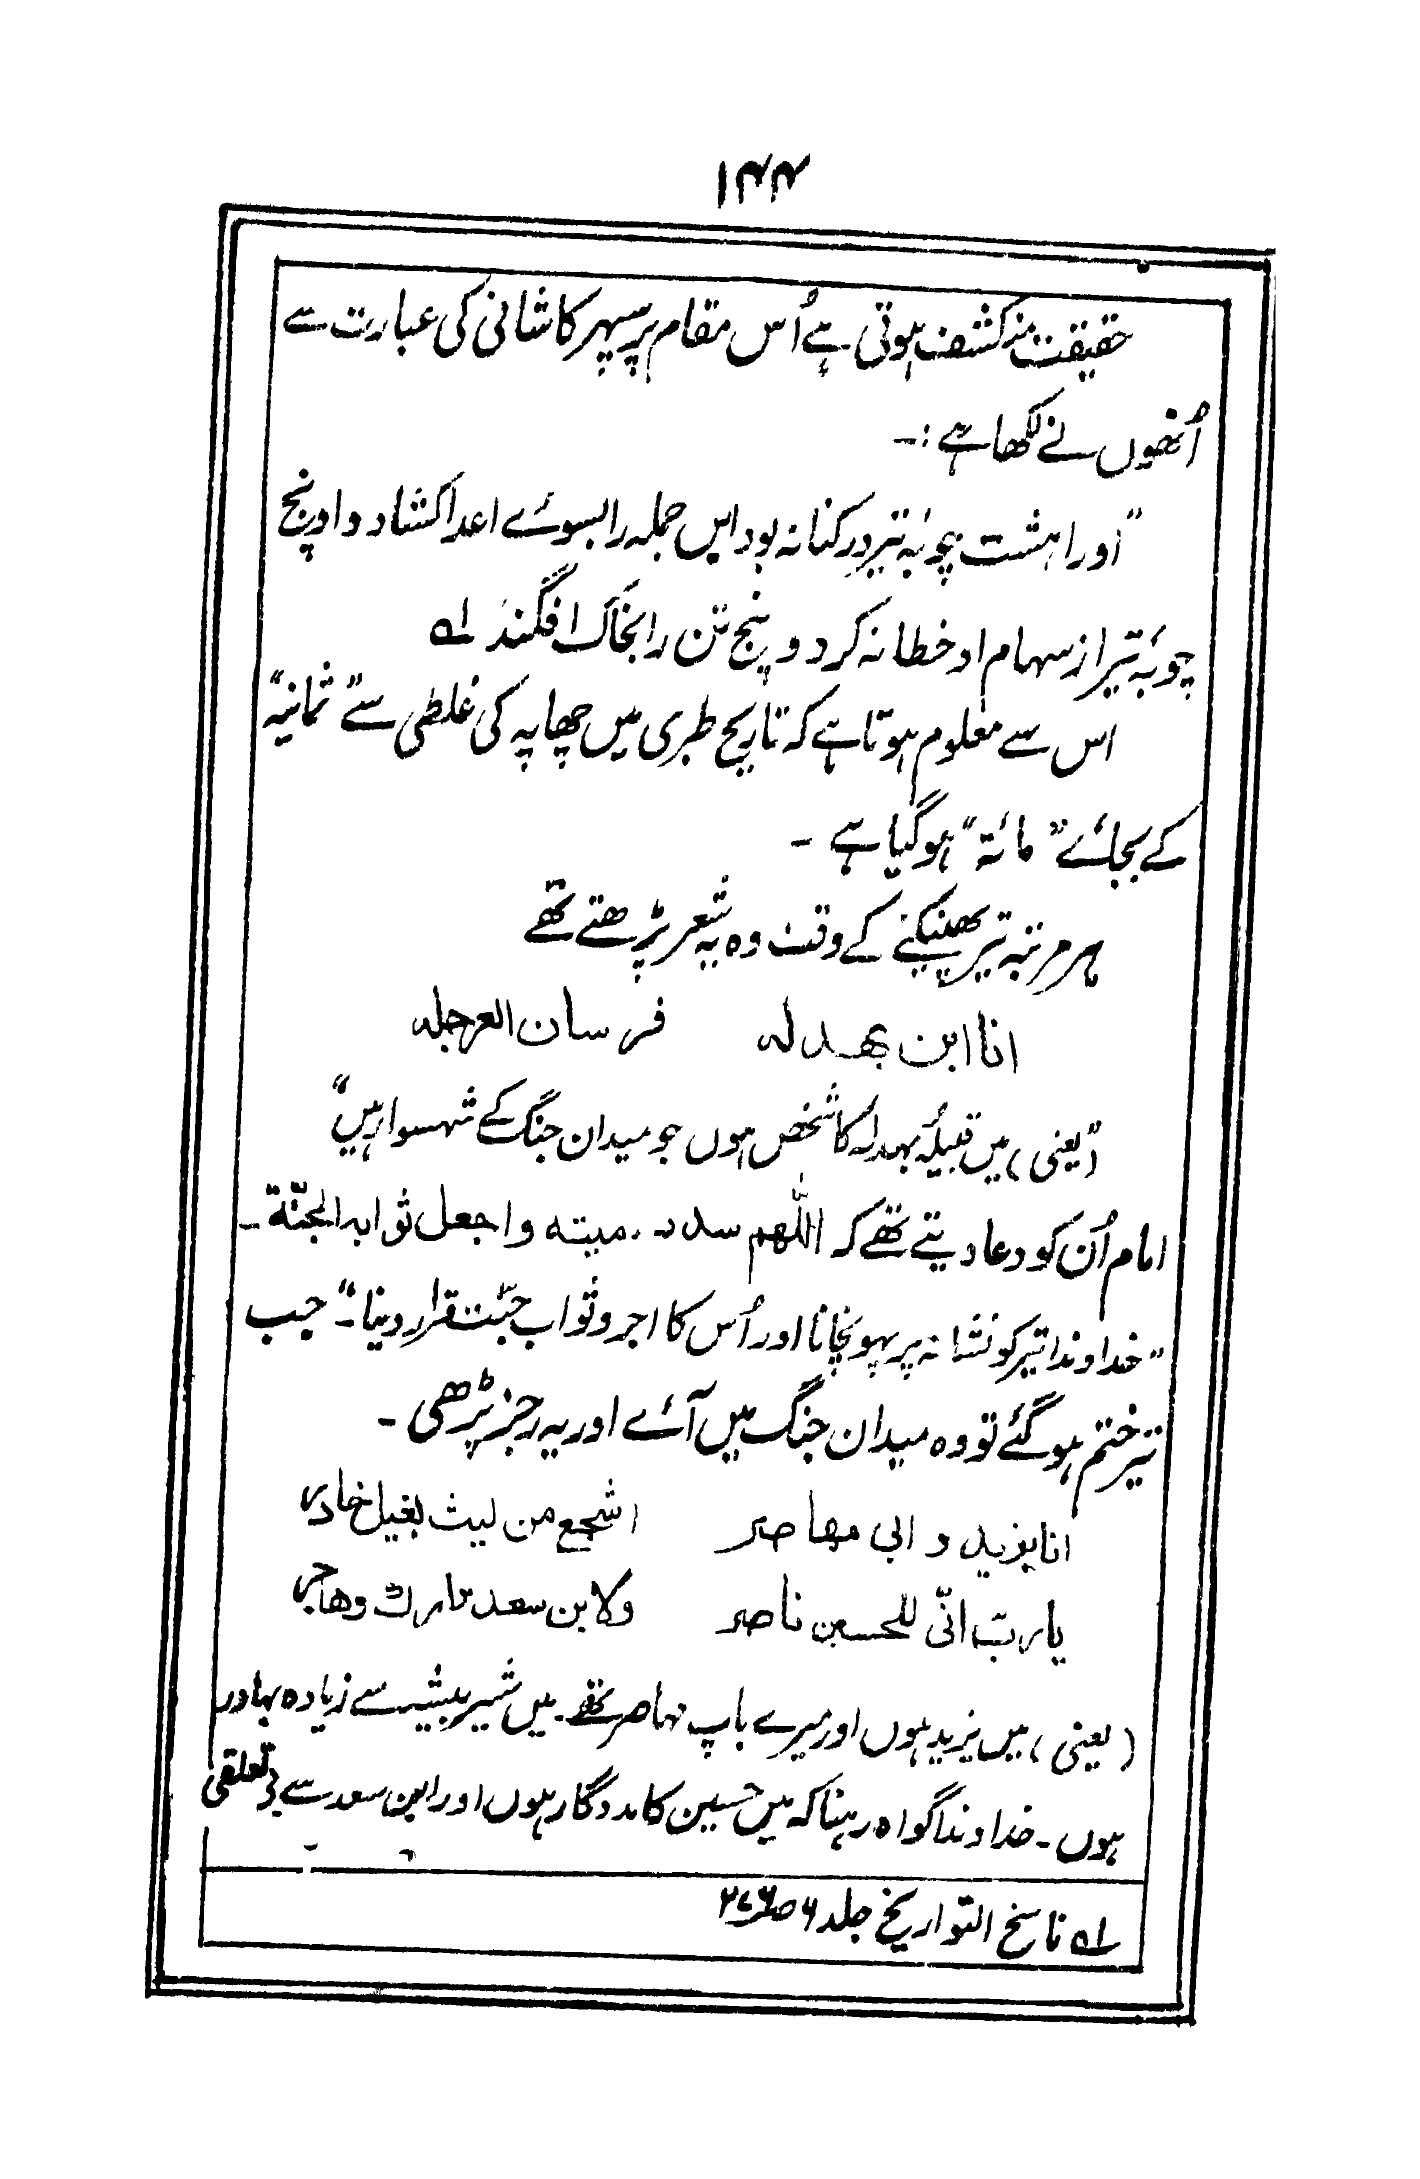 ۱۴۴
حقیقت منکشف ہوتی ہے اُس مقام پر سپہر کاشانی کی عبارت سے
اُنھوں نے لکھا ہے :۔
”اورا ہشت چوبۂ تیر در کنانہ بود ایں جملہ را بسوئے اعدا کشاد و او پنج
چوبۂ تیر از سہام او خطا نہ کرد و پنج تن را بخاک افگند لہ
اس سے معلوم ہوتا ہے کہ تاریخ طبری میں چھاپہ کی غلطی سے ”ثمانیہ“
کے بجائے ”مائۃ“ ہو گیا ہے ۔
ہر مرتبہ تیر پھینکنے کے وقت وہ یہ شعر پڑھتے تھے
انا ابن بھدلہ فرسان العرجلہ
”(یعنی) میں قبیلۂ بہدلہ کا شخص ہوں جو میدان جنگ کے شہسوار ہیں“
امام اُن کو دعا دیتے تھے کہ اللّٰھم سدد رمیتہ واجعل ثوابہ الجنّۃ ۔
”خداوندا تیر کو نشانہ پر پہونچانا اور اُس کا اجر و ثواب جنّت قرار دینا“۔ جب
تیر ختم ہو گئے تو وہ میدان جنگ میں آئے اور یہ رجز پڑھی ۔
انا یزید و ابی مھاصر اشجع من لیث بغیل خادر
یا رب انّی للحسین ناصر ولابن سعد تارک وھاجر
(یعنی) میں یزید ہوں اور میرے باپ مہاصر تھے ۔ میں شیر بیشہ سے زیادہ بہادر
ہوں ۔ خداوندا گواہ رہنا کہ میں حسین کا مددگار ہوں اور ابن سعد سے بے تعلقی
لہ ناسخ التواریخ جلد ۶ صفحہ